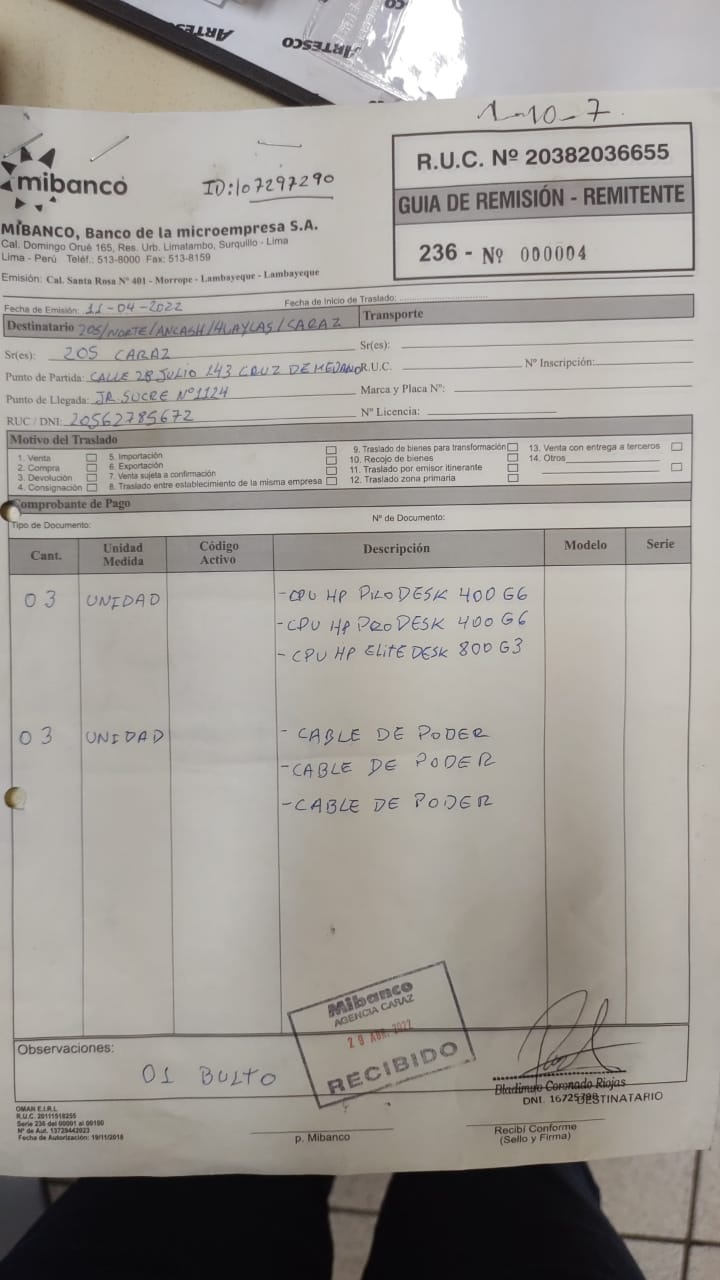 ARTESCO
ARTESCO
1-10-7
mibanco
ID:107297290
R.U.C. Nº 20382036655
GUIA DE REMISIÓN - REMITENTE
236 - Nº 000004
MIBANCO, Banco de la microempresa S.A.
Cal. Domingo Orué 165, Res. Urb. Limatambo, Surquillo - Lima
Lima - Perú Teléf.: 513-8000 Fax: 513-8159
Emisión: Cal. Santa Rosa Nº 401 - Morrope - Lambayeque - Lambayeque
Fecha de Emisión: 11-04-2022 Fecha de Inicio de Traslado:
Destinatario 205/NORTE/ANCASH/HUAYLAS/CARAZ Transporte
Sr(es): 205 CARAZ Sr(es):
Punto de Partida: CALLE 28 JULIO 143 CRUZ DE MEDANO R.U.C. Nº Inscripción:
Punto de Llegada: JR SUCRE Nº 1124 Marca y Placa Nº:
RUC / DNI: 20562785672 Nº Licencia:
Motivo del Traslado
1. Venta 5. Importación 9. Traslado de bienes para transformación 13. Venta con entrega a terceros
2. Compra 6. Exportación 10. Recojo de bienes 14. Otros
3. Devolución 7. Venta sujeta a confirmación 11. Traslado por emisor itinerante
4. Consignación 8. Traslado entre establecimiento de la misma empresa 12. Traslado zona primaria
Comprobante de Pago
Tipo de Documento: Nº de Documento:
Cant. Unidad Medida Código Activo Descripción Modelo Serie
03 UNIDAD - CPU HP PRODESK 400 G6
- CPU HP PRODESK 400 G6
- CPU HP ELITEDESK 800 G3
03 UNIDAD - CABLE DE PODER
- CABLE DE PODER
- CABLE DE PODER
Mibanco
AGENCIA CARAZ
29 ABR. 2022
RECIBIDO
Observaciones:
01 BULTO
Bladimiro Coronado Riojas
DNI. 16725798
DESTINATARIO
OMAN E.I.R.L
R.U.C. 20111518255
Serie 236 del 00001 al 00100
Nº de Aut. 13729442023
Fecha de Autorización: 19/11/2018
p. Mibanco
Recibí Conforme
(Sello y Firma)